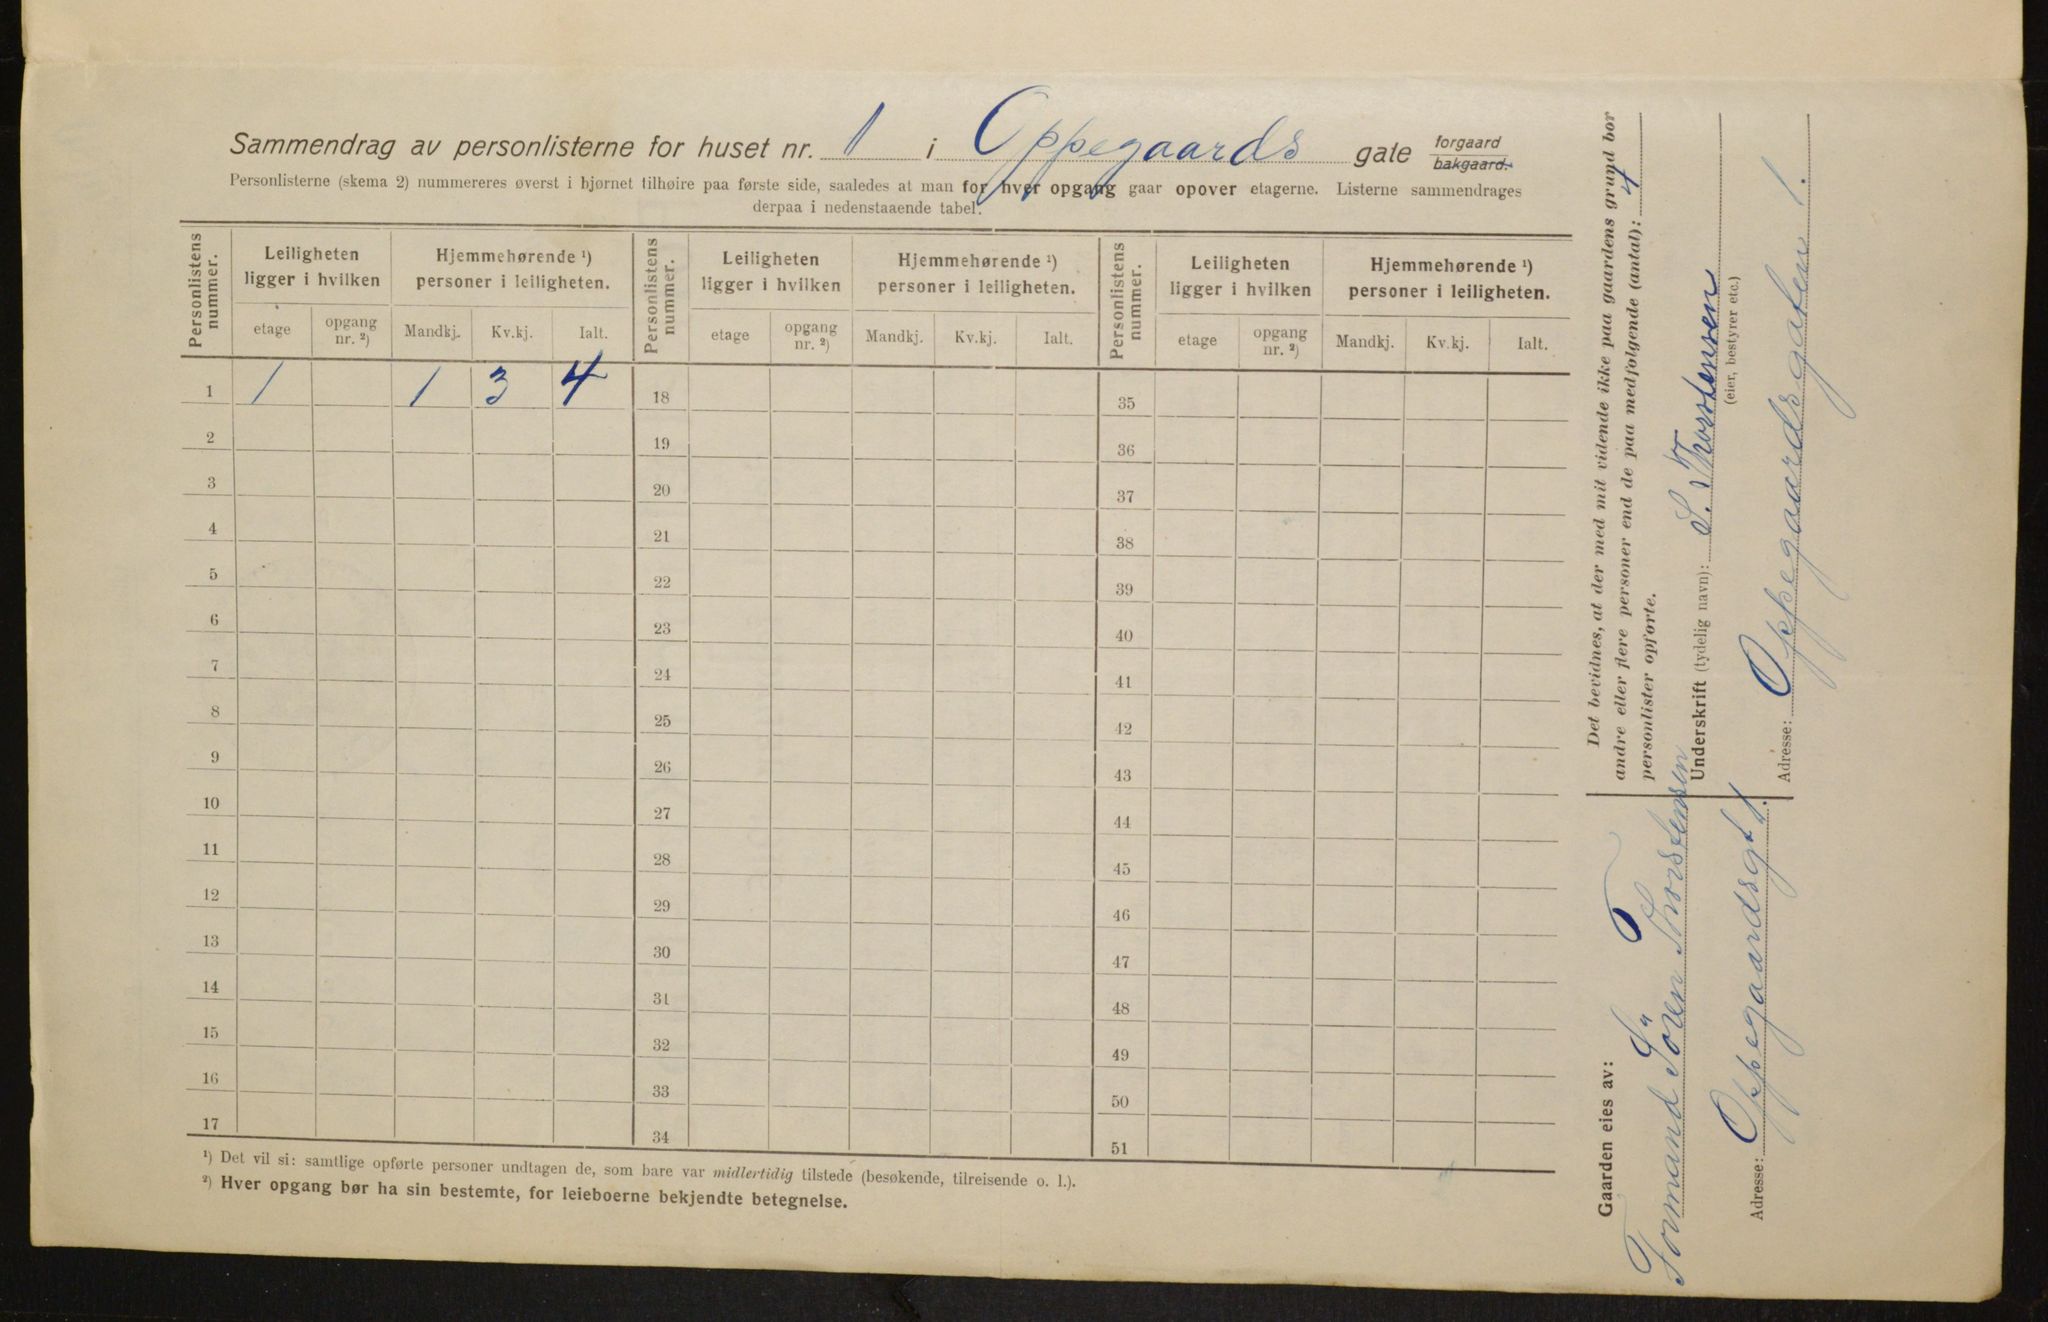 Sammendrag av personlisterne for huset nr. 1 i Oppegaards gate forgaard bakgaard.
Personlisterne (skema 2) nummereres øverst i hjørnet tilhøire paa første side, saaledes at man for hver opgang gaar opover etagerne. Listerne sammendrages
derpaa i nedenstaaende tabel.
Personlistens nummer. Leiligheten ligger i hvilken Hjemmehørende ¹) personer i leiligheten. Personlistens nummer. Leiligheten ligger i hvilken Hjemmehørende ¹) personer i leiligheten. Personlistens nummer. Leiligheten ligger i hvilken Hjemmehørende ¹) personer i leiligheten.
etage opgang nr. ²) Mandkj. Kv.kj. Ialt. etage opgang nr. ²) Mandkj. Kv.kj. Ialt. etage opgang nr. ²) Mandkj. Kv.kj. Ialt.
1 1 1 3 4 18 35
2 19 36
3 20 37
4 21 38
5 22 39
6 23 40
7 24 41
8 25 42
9 26 43
10 27 44
11 28 45
12 29 46
13 30 47
14 31 48
15 32 49
16 33 50
17 34 51
¹) Det vil si: samtlige opførte personer undtagen de, som bare var midlertidig tilstede (besøkende, tilreisende o. l.).
²) Hver opgang bør ha sin bestemte, for leieboerne bekjendte betegnelse.
Det bevidnes, at der med mit vidende ikke paa gaardens grund bor
andre eller flere personer end de paa medfølgende (antal): 4
personlister opførte.
Underskrift (tydelig navn): S. Thorstensen
(eier, bestyrer etc.)
Adresse: Oppegaardsgaten 1.
Gaarden eies av:
Formand Sören Thorstensen
Adresse: Oppegaardsgt 1.